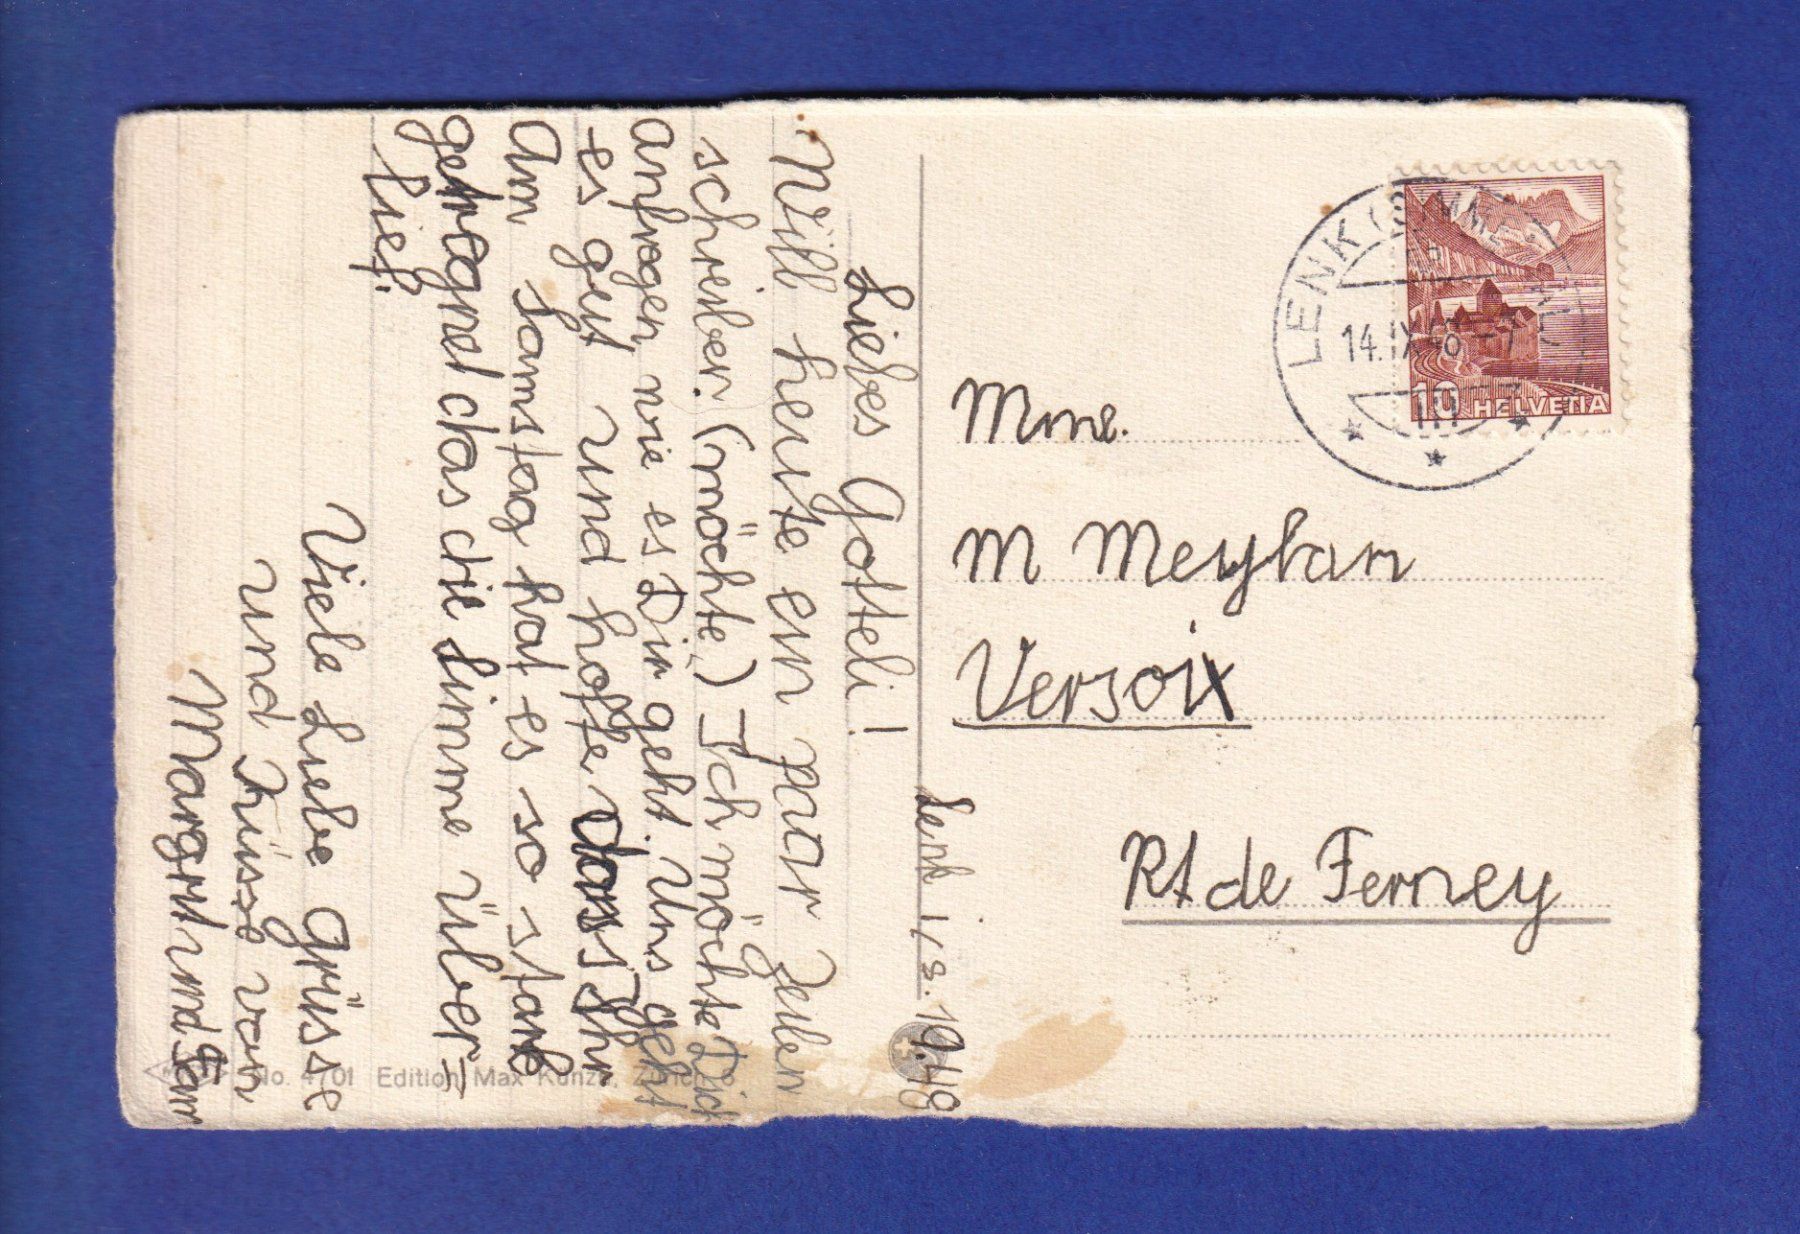 Lenk 1/s. 19.48
Liebes Gotteli!
Will heute ein paar Zeilen
schreiben. (möchte,) Ich möchte Dich
anfragen wie es Dir geht. Uns geht
es gut und hoffe dass Ihr
Am Samstag hat es so stark
geregnet das die Simme über-
lief.
Viele Liebe Grüsse
und Küsse von
Margrit und Fam
Mme.
M Meylan
Versoix
Rt de Ferney
LENK (SIMMENTAL)
14.IX.48-7
10 HELVETIA
No. 4701 Edition Max Künzli, Zürich 6